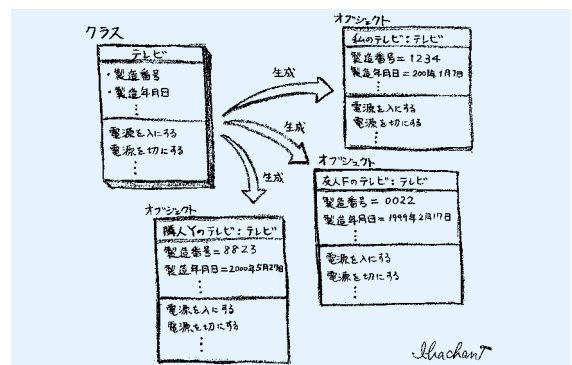 クラス
テレビ
・製造番号
・製造年月日
⋮
電源を入にする
電源を切にする
⋮
生成
オブジェクト
私のテレビ：テレビ
製造番号＝1234
製造年月日＝2001年1月7日
⋮
電源を入にする
電源を切にする
⋮
生成
オブジェクト
友人Fのテレビ：テレビ
製造番号＝0022
製造年月日＝1999年2月17日
⋮
電源を入にする
電源を切にする
⋮
生成
オブジェクト
隣人Yのテレビ：テレビ
製造番号＝8823
製造年月日＝2000年5月27日
⋮
電源を入にする
電源を切にする
⋮